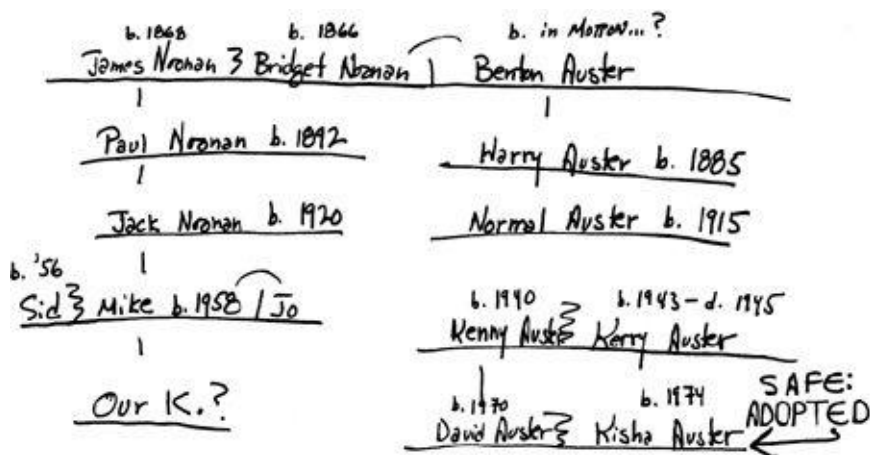 b. 1868 b. 1866 b. in MOTTON...?
James Noonan } Bridget Noonan | Benton Auster
Paul Noonan b. 1892
Harry Auster b. 1885
Jack Noonan b. 1920
Normal Auster b. 1915
b. '56
Sid } Mike b. 1958 / Jo
b. 1940 b. 1943 - d. 1945
Kenny Auster } Kerry Auster
Our K.?
b. 1970 b. 1974
David Auster } Kisha Auster
SAFE:
ADOPTED